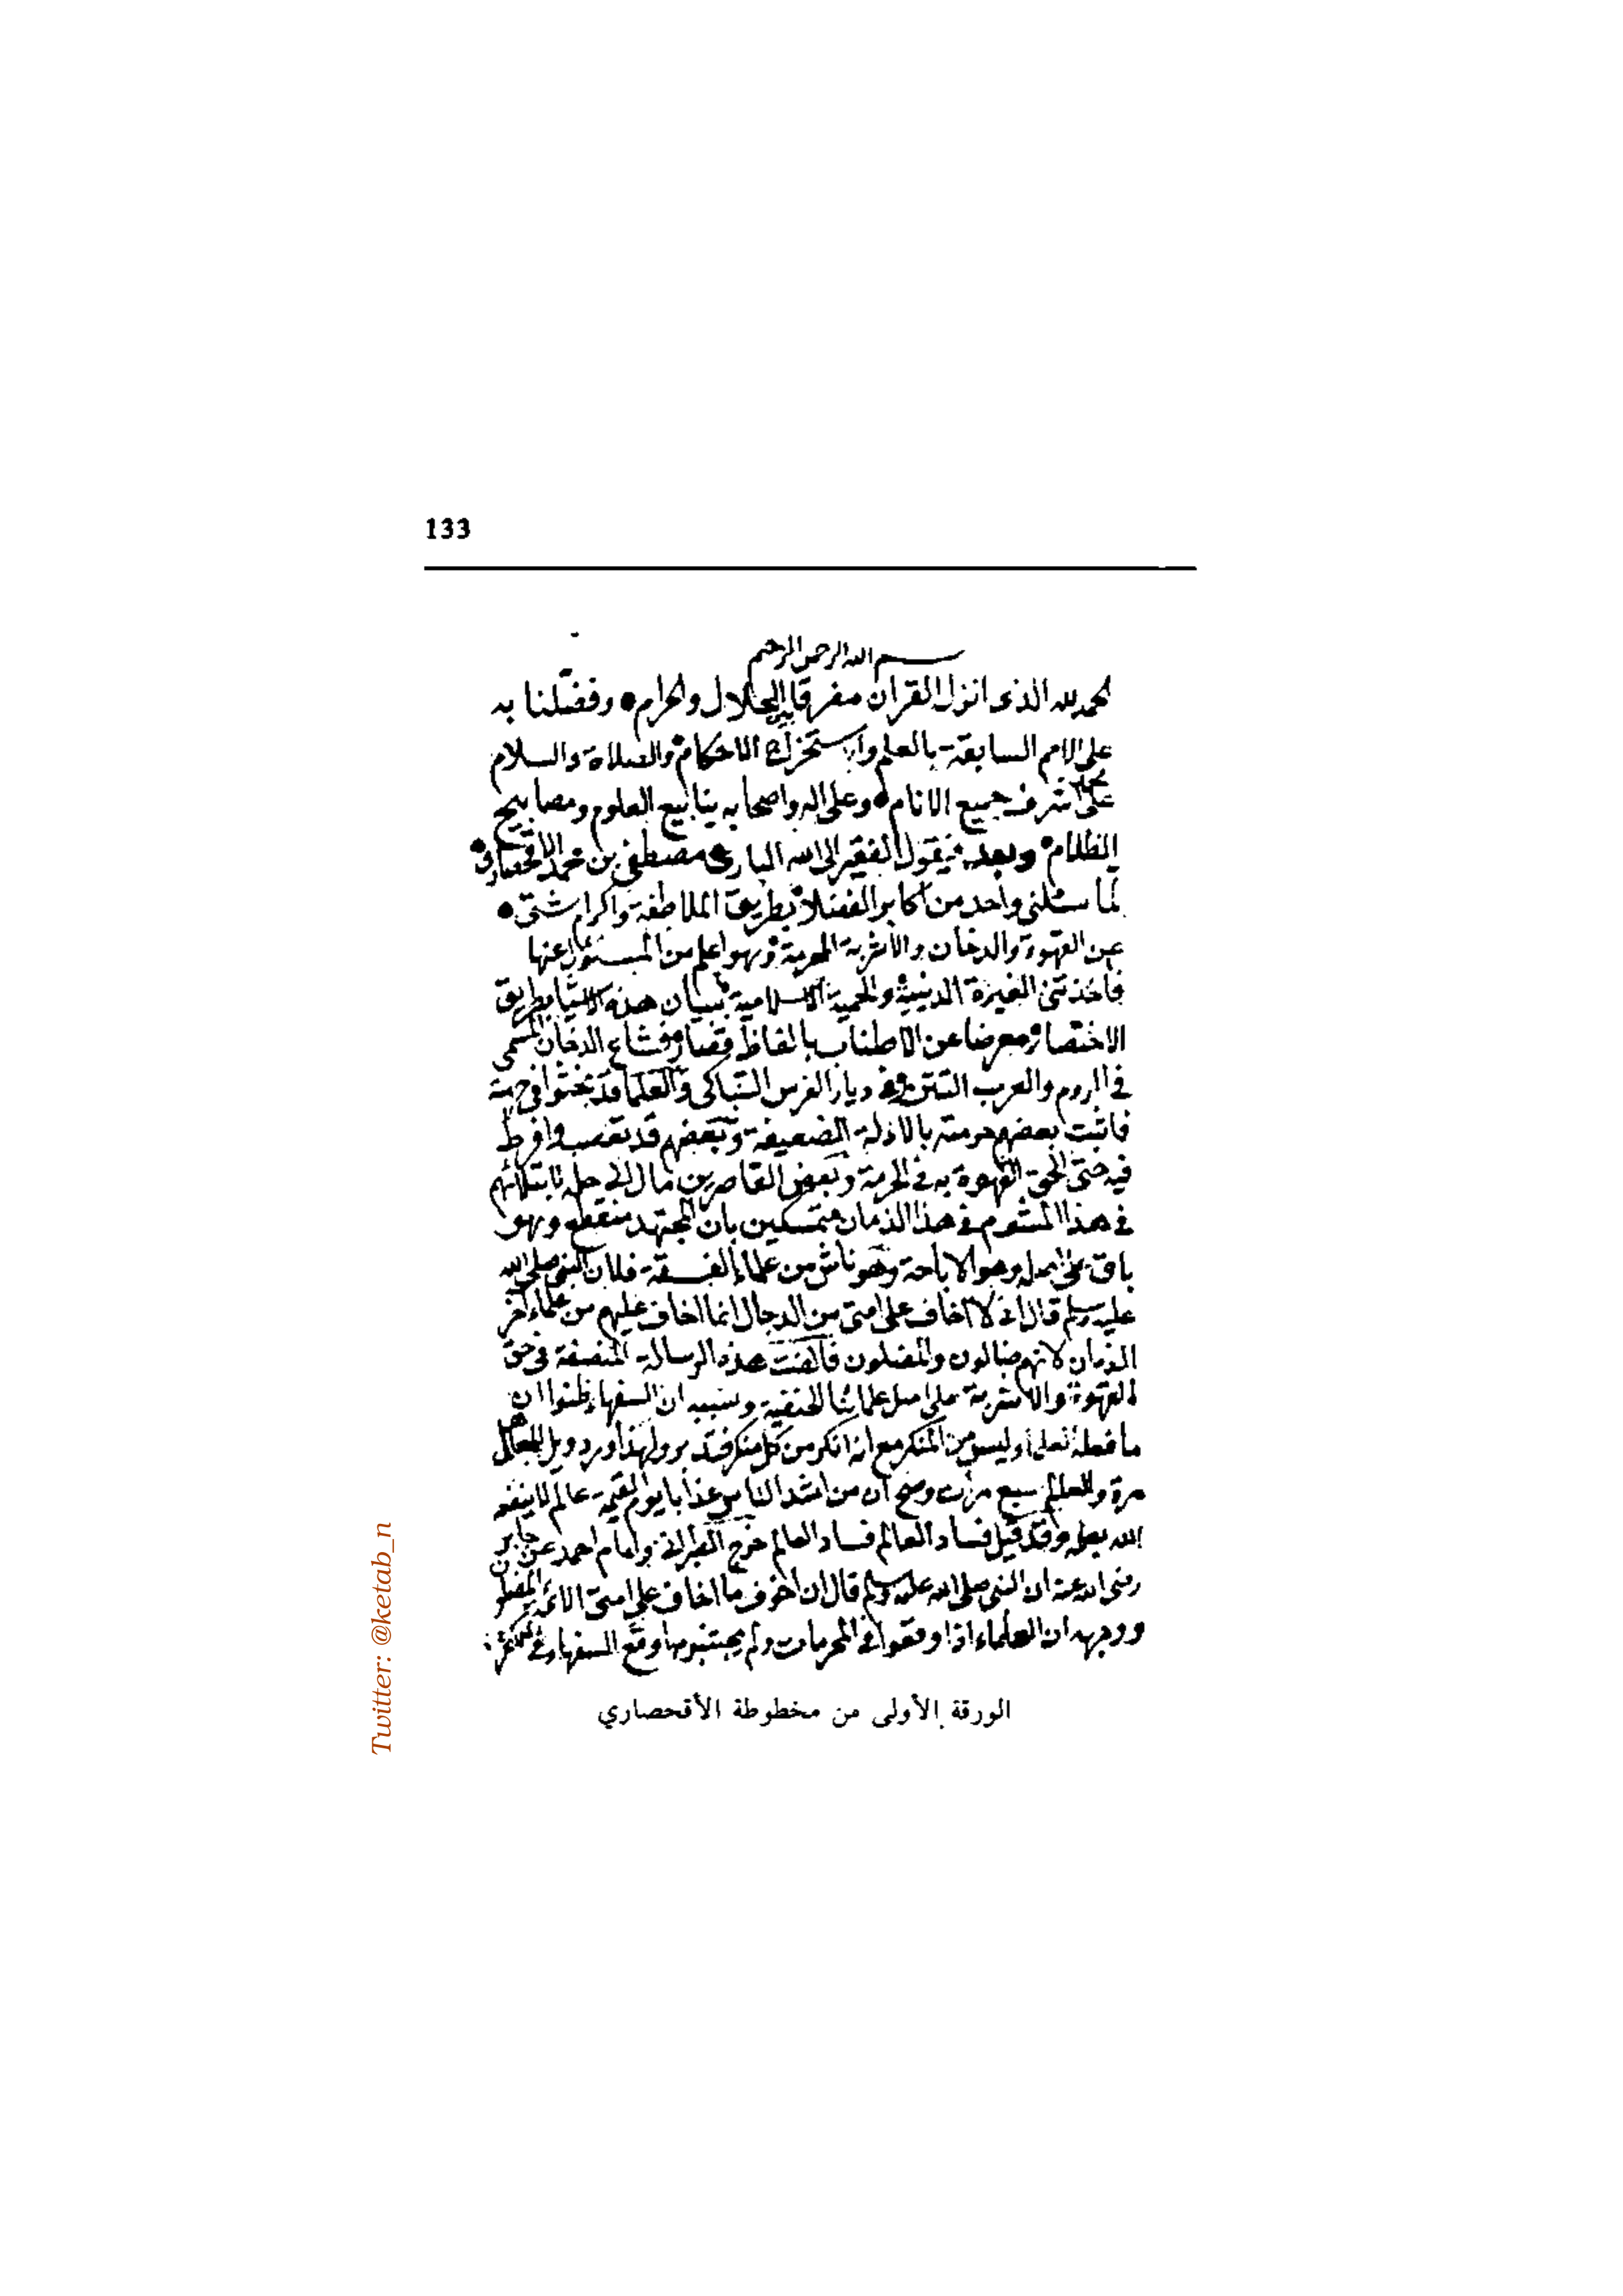 133
بسم الله الرحمن الرحيم
الحمد لله الذى انزل القران مفرقا بين الحلال والحرام وفضّلنا به
على الامم السابقة بالعلم واستخراج الاحكام والصلاة والسلام
على محمد اشرف جميع الانام وعلى اله واصحابه ينابيع العلوم ومصابيح
الظلام وبعد فيقول الفقير الى الله البارى مصطفى بن محمد الاقحصارى
لما سئلنى واحد من اكابر الفضلا بطريق الملاطفة واكرام شتى
عن القهوة والدخان والاشربة المحرمة وهو اعلم من المسئول عنها
فاخذتنى الغيرة الدينية والحمية الاسلامية ببيان هذه الاشيا بطريق
الاختصار معرضا عن الاطناب بالفاظ قصار فشاع الدخان المسمى
فى الروم والعرب التتن وفى ديار الفرس التنباكى والعلما قد بحثوا فى حرمته
فاثبت بعضهم حرمته بالادلة الضعيفة وبعضهم قد تعصب وافرط
فيه حتى الحق القهوة به فى الحرمة وبعض القاصرين مال الى حله لابتلائهم
فى هذا المشئوم فى هذا الزمان متمسكين بان المجتهد منقطع وهو
باق على اصله وهو الاباحة وهو ناش من علماء الفسقة فلان النبى صلى الله
عليه وسلم قال انى لا اخاف على امتى من الدجال انما اخاف عليهم من علماء اخر
الزمان لانهم ضالون والمضلون فالفت هذه الرسالة المنصفة فى حق
القهوة والاشربة على اصل علمائنا الحنفية وسببه ان السفهاء ظنوا ان
ما فعله العلماء وليس من المنكر مع انه انكر من كل منكر ولهذا ورد ويل للجاهل
مرة وللعالم سبع مرات وصح ان من اشد الناس عذابا يوم القيمة عالم لا ينفعه
الله بعلمه وقد قيل فساد العالم فساد العالم خرج الطبرانى وامام احمد عن جابر
رضى الله عنه ان النبى صلى الله عليه وسلم قال ان اخوف ما اخاف على امتى الائمة المضلون
ووجهه ان العلماء اذا وقعوا فى المحرمات ولم يجتنبوها وقع السفهاء فى
الورقة الأولى من مخطوطة الأقحصاري
Twitter: @ketab_n